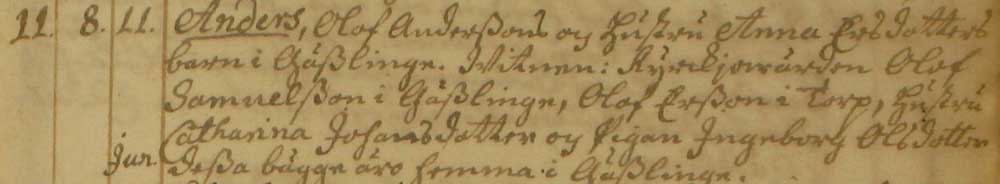 11. 8. 11. Anders, Olof Anderßons og Hustru Anna Ersdotters
barn i Gäßlinge. Witnen: Kyrckjowärden Olof
Samuelßon i Gäßlinge, Olof Erßon i Torp, Hustru
Catharina Johansdotter og Pigan Ingeborg Olsdotter
Jun. deßa bägge äro hemma i Gäßlinge.